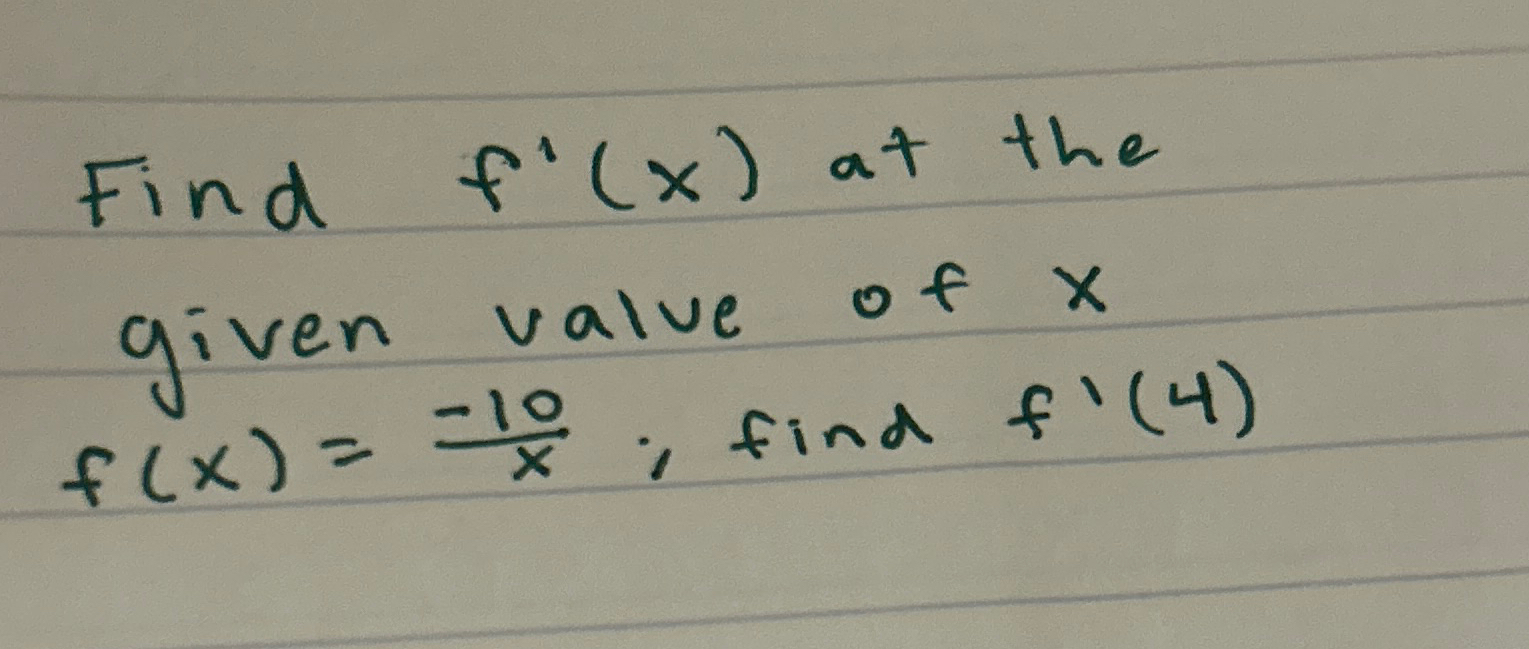 Find f'(x) at the
given value of x
f(x) = -10/x ; find f'(4)